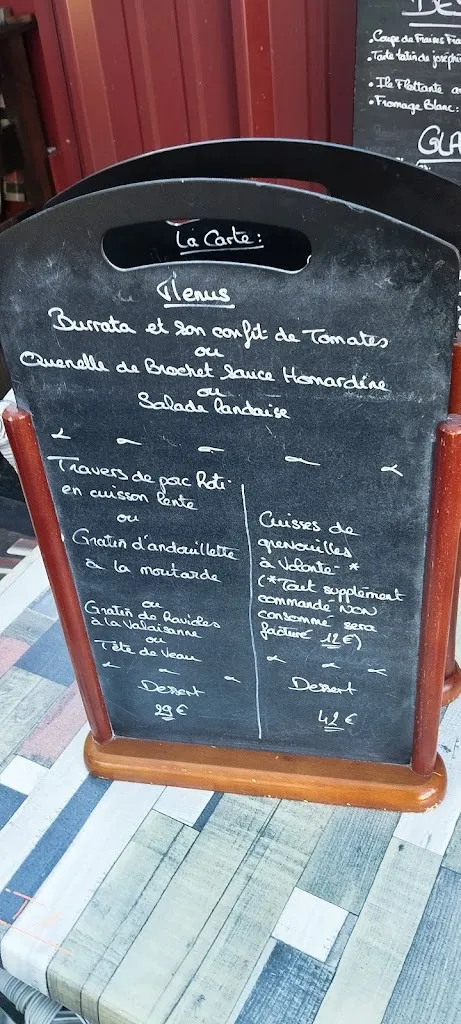 DES
• Coupe de Fraises Fra
• Tarte tatin de Joséphi
• Ile Flottante
• Fromage Blanc :
GLA
La Carte :
Menus
Burrata et son confit de Tomates
ou
Quenelle de Brochet Sauce Homardine
ou
Salade landaise
Travers de porc Roti
en cuisson lente
ou
Gratin d'andouillette
à la moutarde
ou
Gratin de Ravioles
à la Valaisanne
ou
Tête de Veau
Dessert
29 €
Cuisses de
grenouilles
à Volonté *
(*Tout supplément
commandé NON
consommé sera
facturé 12 €)
Dessert
42 €